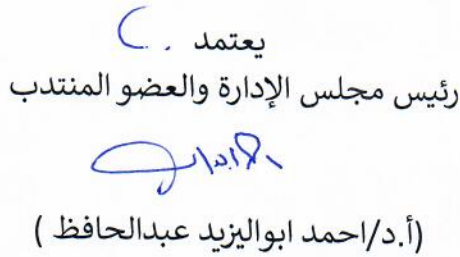 يعتمد
رئيس مجلس الإدارة والعضو المنتدب
(أ.د/احمد ابواليزيد عبدالحافظ )